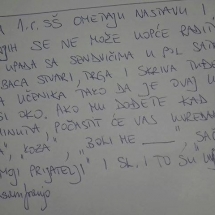 1. r. SŠ OMETAJU NASTAVU I
SE NE MOŽE UOPĆE RADITI
UPADA SA SENDVIČIMA U POL SATA
BACA STVARI, TRGA I SKRIVA TUĐE
UČENIKA TAKO DA JE OVAJ
OKO. AKO MU DOĐETE KAD
POČASTIT ĆE VAS
"KOZA", "BOLI ME ____", "SAD
MOJI PRIJATELJI" I SL. I TO SU